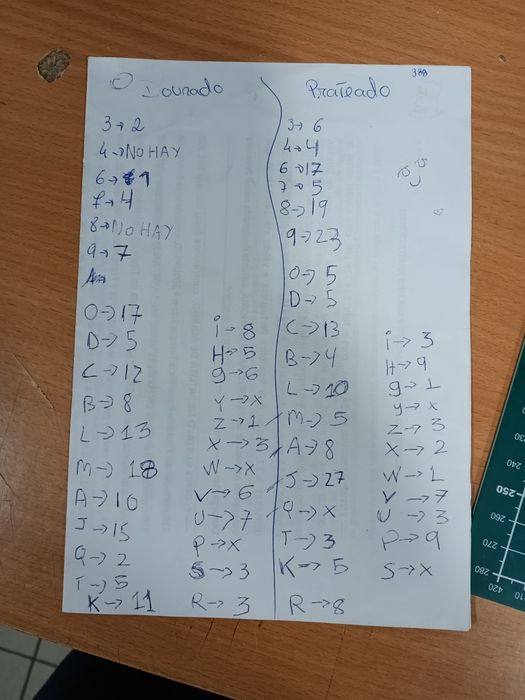 388
Dourado
3→2
4→NO HAY
6→1
7→4
8→NO HAY
9→7
O→17
D→5
C→12
B→8
L→13
M→18
A→10
J→15
Q→2
T→5
K→11
i→8
H→5
g→6
Y→X
Z→1
X→3
W→X
V→6
U→7
P→X
S→3
R→3
Prateado
3→6
4→4
6→17
7→5
8→19
9→23
O→5
D→5
C→13
B→4
L→10
M→5
A→8
J→27
Q→X
T→3
K→5
R→8
i→3
H→9
g→1
y→x
Z→3
X→2
W→1
V→7
U→3
P→9
S→X
250
260
270
280
420
410